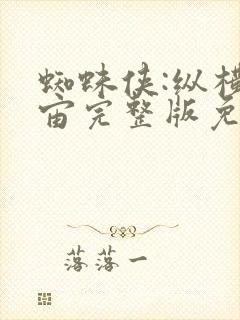 蜘蛛侠:纵横
宙完整版免
落落一